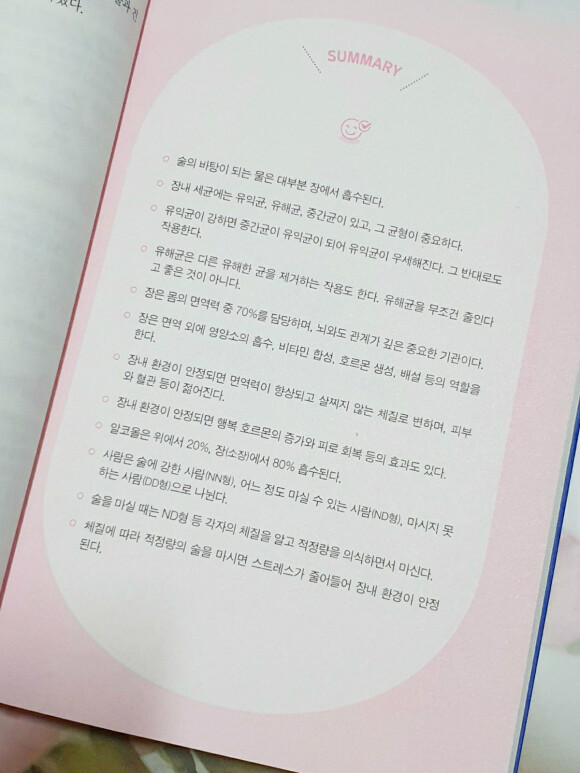 과 전
SUMMARY
술의 바탕이 되는 물은 대부분 장에서 흡수된다.
장내 세균에는 유익균, 유해균, 중간균이 있고, 그 균형이 중요하다.
유익균이 강하면 중간균이 유익균이 되어 유익균이 우세해진다. 그 반대로도
작용한다.
유해균은 다른 유해한 균을 제거하는 작용도 한다. 유해균을 무조건 줄인다
고 좋은 것이 아니다.
장은 몸의 면역력 중 70%를 담당하며, 뇌와도 관계가 깊은 중요한 기관이다.
장은 면역 외에 영양소의 흡수, 비타민 합성, 호르몬 생성, 배설 등의 역할을
한다.
장내 환경이 안정되면 면역력이 향상되고 살찌지 않는 체질로 변하며, 피부
와 혈관 등이 젊어진다.
장내 환경이 안정되면 행복 호르몬의 증가와 피로 회복 등의 효과도 있다.
알코올은 위에서 20%, 장(소장)에서 80% 흡수된다.
사람은 술에 강한 사람(NN형), 어느 정도 마실 수 있는 사람(ND형), 마시지 못
하는 사람(DD형)으로 나뉜다.
술을 마실 때는 ND형 등 각자의 체질을 알고 적정량을 의식하면서 마신다.
체질에 따라 적정량의 술을 마시면 스트레스가 줄어들어 장내 환경이 안정
된다.